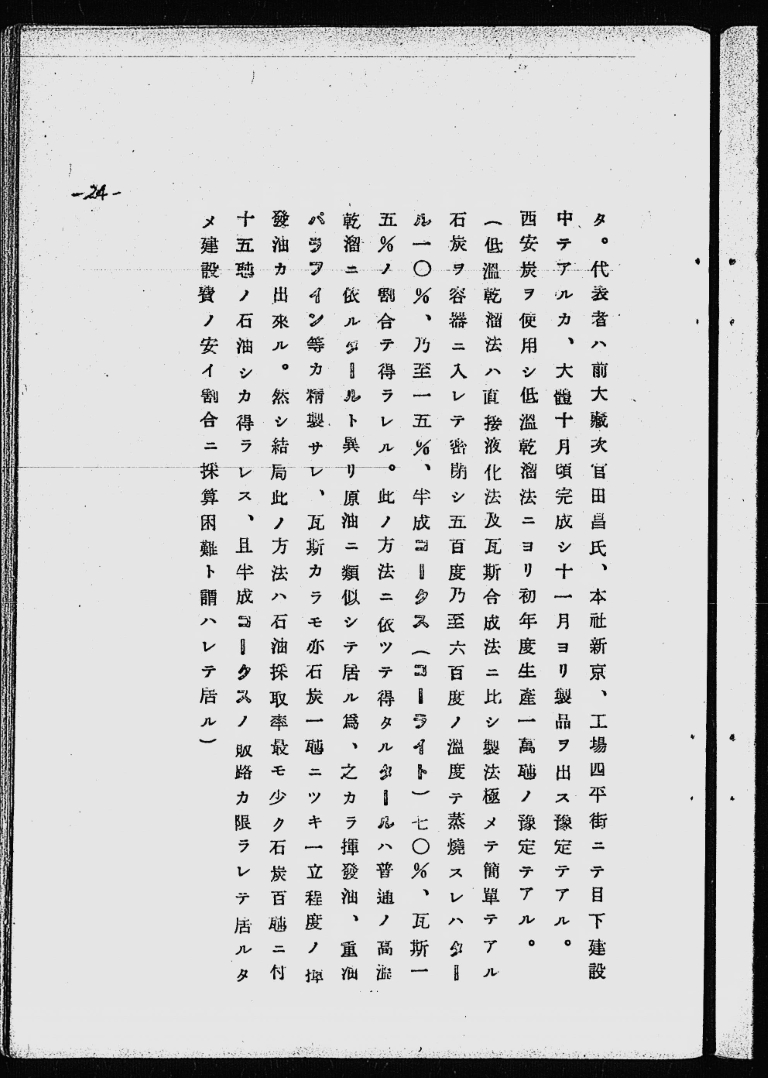 タ。代表者ハ前大藏次官田昌氏、本社新京、工場四平街ニテ目下建設
中テアルカ、大體十月頃完成シ十一月ヨリ製品ヲ出ス豫定テアル。
西安炭ヲ使用シ低溫乾溜法ニヨリ初年度生產一萬瓲ノ豫定テアル。
(低溫乾溜法ハ直接液化法及瓦斯合成法ニ比シ製法極メテ簡單テアル
石炭ヲ容器ニ入レテ密閉シ五百度乃至六百度ノ溫度テ蒸燒スレハター
ル一〇%、乃至一五%、半成コークス(コーライト)七〇%、瓦斯一
五%ノ割合テ得ラレル。此ノ方法ニ依ツテ得タルタールハ普通ノ高溫
乾溜ニ依ルタールト異リ原油ニ類似シテ居ル爲、之カラ揮發油、重油
パラフイン等カ精製サレ、瓦斯カラモ亦石炭一瓲ニツキ一立程度ノ揮
發油カ出來ル。然シ結局此ノ方法ハ石油採取率最モ少ク石炭百瓲ニ付
十五瓲ノ石油シカ得ラレス、且半成コークスノ販路カ限ラレテ居ルタ
メ建設費ノ安イ割合ニ採算困難ト謂ハレテ居ル)
-24-